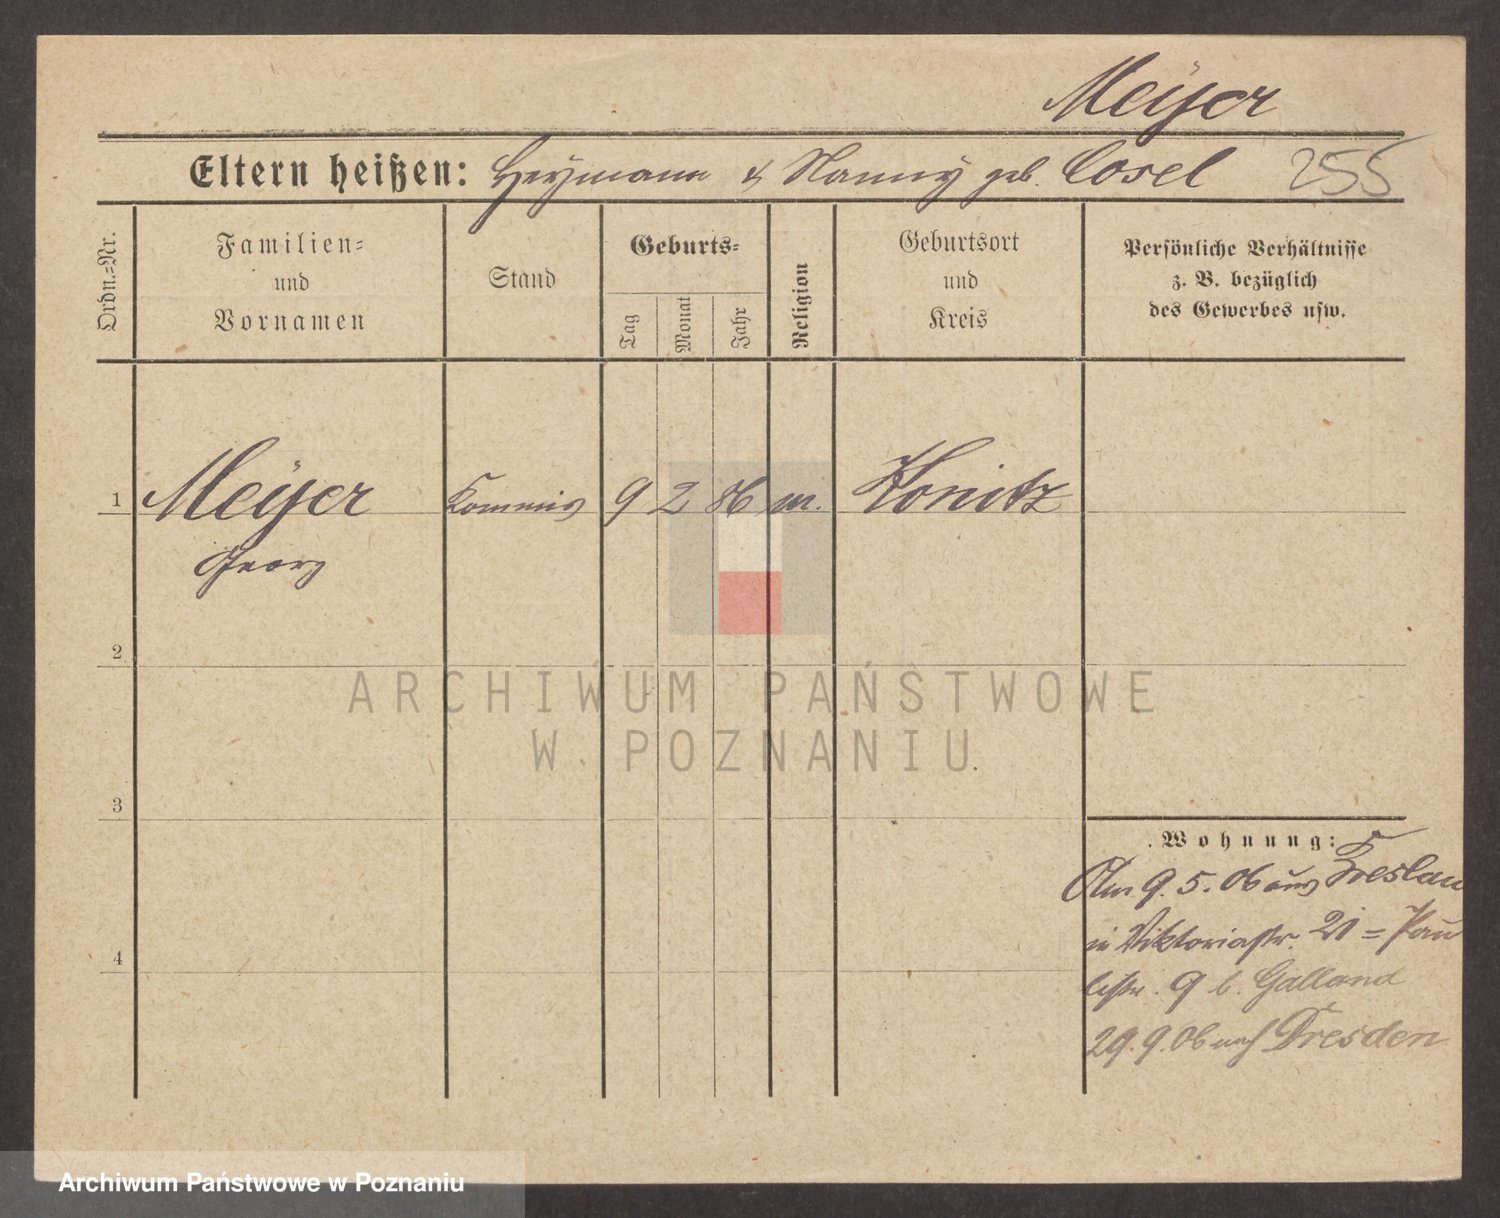 Meÿer
Eltern heißen: Heymann & Nanny geb. Cosel 255
Ordn.=Nr.
Familien=
und
Vornamen
Stand
Geburts=
Tag
Monat
Jahr
Religion
Geburtsort
und
Kreis
Persönliche Verhältnisse
z. B. bezüglich
des Gewerbes usw.
1 Meÿer Kommis 9 2 86 m. Konitz
Georg
2
ARCHIWUM PAŃSTWOWE
W POZNANIU
3
Wohnung:
Am 9. 5. 06 aus Breslau
in Viktoriastr. 21 = Pau
listr. 9 b. Galland
4
29. 9. 06 nach Dresden
Archiwum Państwowe w Poznaniu